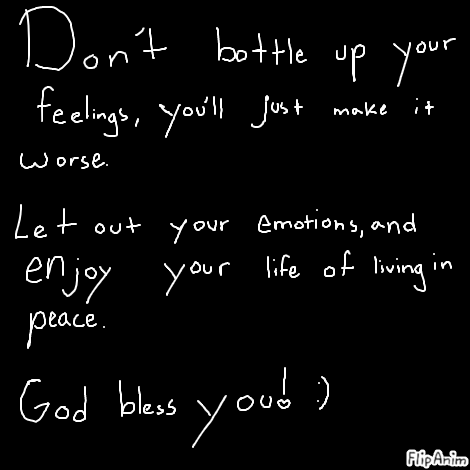 Don't bottle up your
feelings, you'll just make it
worse.
Let out your emotions, and
enjoy your life of living in
peace.
God bless you! :)
FlipAnim